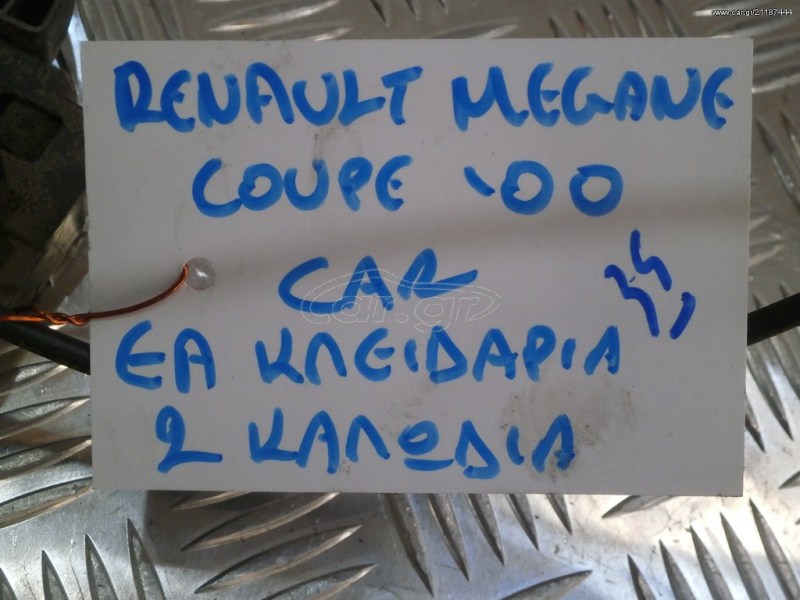 www.car.gr/21187444
RENAULT MEGANE
COUPE '00
CAR
car.gr
ΕΑ ΚΛΕΙΔΑΡΙΑ
2 ΚΑΛΩΔΙΑ